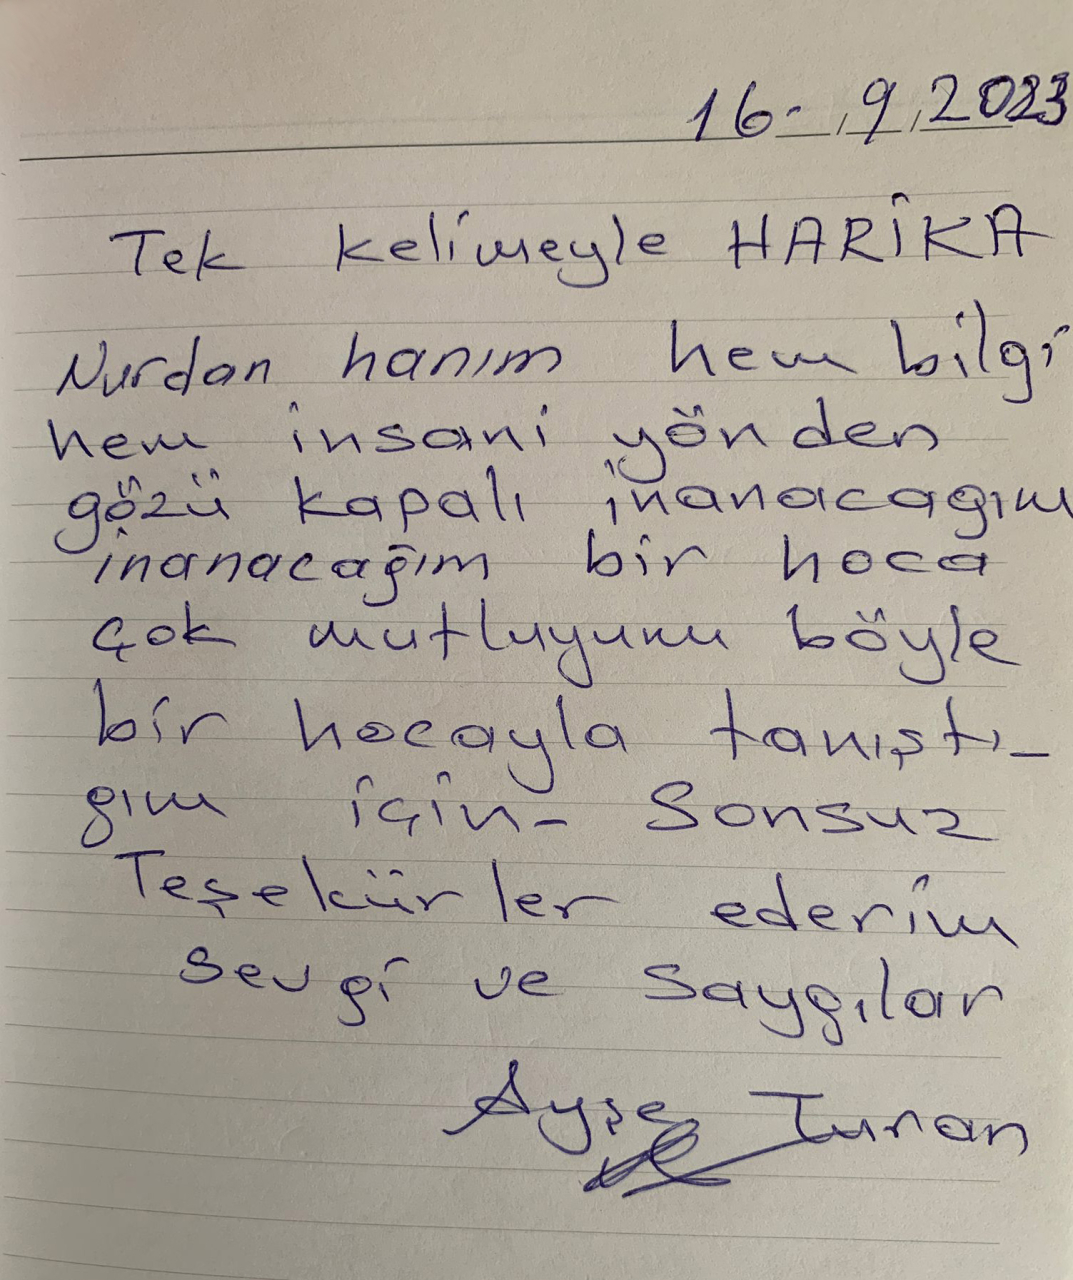 16-.,9,2023
Tek kelimeyle HARİKA
Nurdan hanım hem bilgi
hem insani yönden
gözü kapalı inanacagım
inanacağım bir hoca
çok mutluyum böyle
bir hocayla tanıştı-
gım için- Sonsuz
Teşekürler ederim
Sevgi ve Saygılar
Ayşe Turan